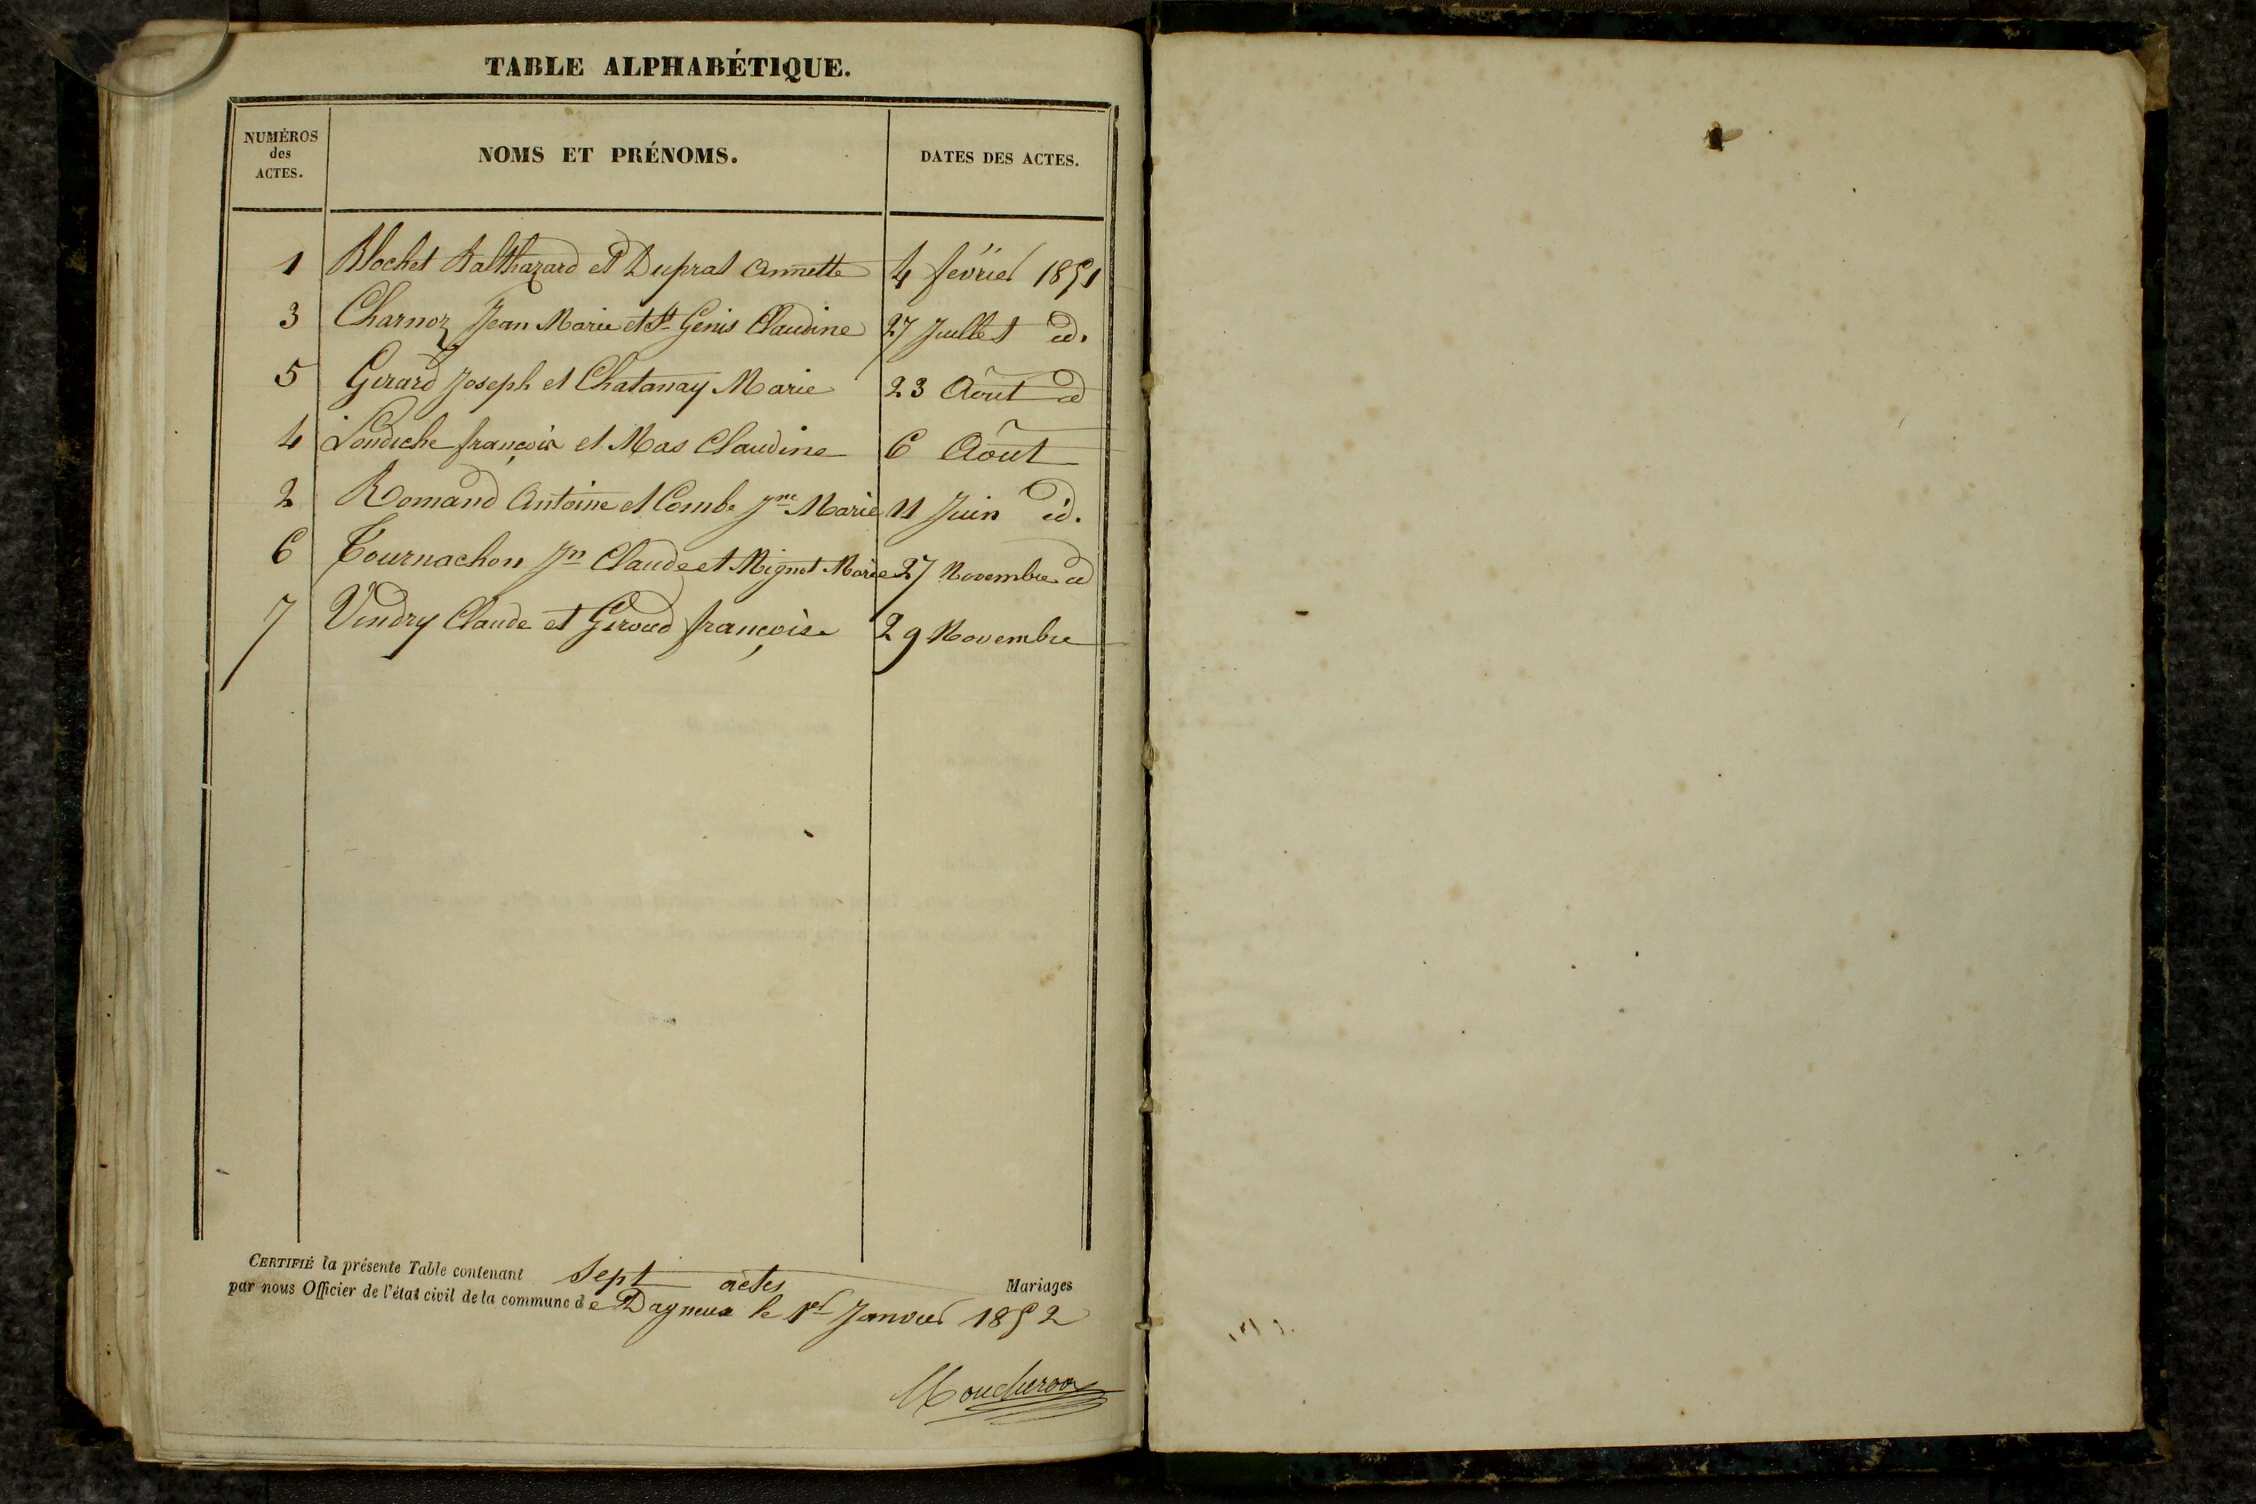 TABLE ALPHABÉTIQUE.
NUMÉROS des ACTES. NOMS ET PRÉNOMS. DATES DES ACTES.
1 Blochet Balthazard et Duprat Annette 4 février 1851
3 Charnoz Jean Marie et St Genis Claudine 27 Juillet id.
5 Girard Joseph et Chatanay Marie 23 Août id
4 Londiche françois et Mas Claudine 6 Août
2 Romand Antoine et Combe Jne Marie 11 Juin id.
6 Tournachon Jn Claude et Mignot Marie 27 Novembre id
7 Vendry Claude et Giroud françoise 29 Novembre
CERTIFIÉ la présente Table contenant sept actes Mariages
par nous Officier de l'état civil de la commune de Dagneux le 1er Janvier 1852
Moucheron